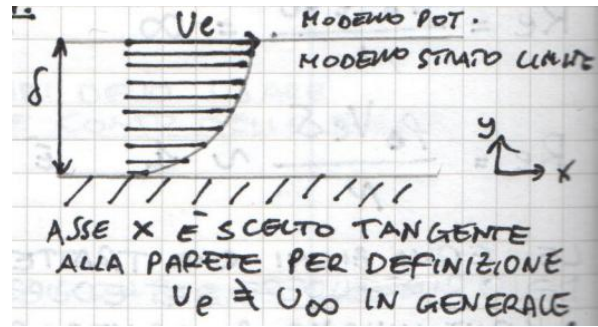 Ue MODELLO POT.
MODELLO STRATO LIMITE
δ
y
x
ASSE X È SCELTO TANGENTE
ALLA PARETE PER DEFINIZIONE
Ue ≠ U∞ IN GENERALE